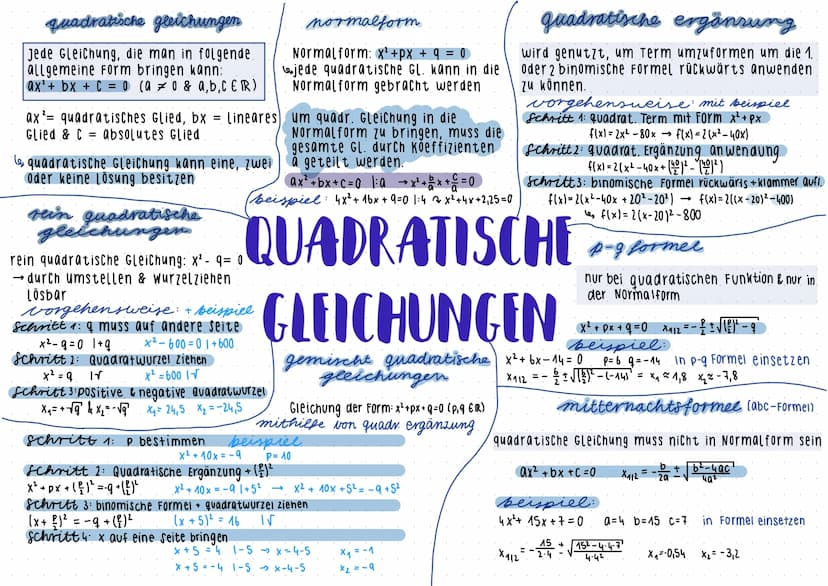 quadratische gleichungen
jede Gleichung, die man in folgende
allgemeine Form bringen kann:
ax² + bx + c = 0 (a ≠ 0 & a,b,c ∈ ℝ)
ax² = quadratisches Glied, bx = lineares
Glied & c = absolutes Glied
↳ quadratische Gleichung kann eine, zwei
oder keine Lösung besitzen
normalform
Normalform: x²+px + q = 0
↳ jede quadratische Gl. kann in die
Normalform gebracht werden
um quadr. Gleichung in die
Normalform zu bringen, muss die
gesamte Gl. durch Koeffizienten
a geteilt werden.
ax²+bx+c=0 |:a → x²+b/a x+c/a=0
beispiel: 4x²+16x+9=0 |:4 ↷ x²+4x+2,25=0
quadratische ergänzung
wird genutzt, um Term umzuformen um die 1.
oder 2 binomische Formel rückwärts anwenden
zu können.
vorgehensweise: mit beispiel
Schritt 1: quadrat. Term mit Form x²+px
f(x)=2x²-80x → f(x)=2(x²-40x)
Schritt 2: quadrat. Ergänzung anwendung
f(x)=2(x²-40x+(40/2)²-(40/2)²)
Schritt 3: binomische Formel rückwärts + klammer aufl.
f(x)=2(x²-40x+20²-20²) → f(x)=2((x-20)²-400)
↳ f(x)=2(x-20)²-800
QUADRATISCHE
GLEICHUNGEN
rein quadratische
gleichungen
rein quadratische Gleichung: x²-q=0
→ durch Umstellen & Wurzelziehen
lösbar
vorgehensweise: + beispiel
Schritt 1: q muss auf andere Seite
x²-q=0 |+q x²-600=0 |+600
Schritt 2: Quadratwurzel ziehen
x²=q |√ x²=600 |√
Schritt 3: positive & negative Quadratwurzel
x₁=+√q & x₂=-√q x₁=24,5 x₂=-24,5
p-q formel
nur bei quadratischen Funktion & nur in
der Normalform
x²+px+q=0 x₁,₂=-p/2±√((p/2)²-q)
beispiel:
x²+6x-14=0 p=6 q=-14 in p-q Formel einsetzen
x₁/₂=-6/2±√((6/2)²-(-14)) = x₁≈1,8 x₂≈-7,8
gemischt quadratische
gleichungen
Gleichung der Form: x²+px+q=0 (p,q ∈ ℝ)
mithilfe von quadr. ergänzung
Schritt 1: p bestimmen beispiel
x²+10x=-9 p=10
Schritt 2: Quadratische Ergänzung +(p/2)²
x²+px+(p/2)²=-q+(p/2)² x²+10x=-9 |+5² → x²+10x+5²=-9+5²
Schritt 3: binomische Formel + quadratwurzel ziehen
(x+p/2)²=-q+(p/2)² (x+5)²=16 |√
Schritt 4: x auf eine Seite bringen
x+5=4 |-5 → x=4-5 x₁=-1
x+5=-4 |-5 → x=-4-5 x₂=-9
mitternachtsformel (abc-Formel)
quadratische Gleichung muss nicht in Normalform sein
ax²+bx+c=0 x₁/₂=-b/2a±√((b²-4ac)/4a²)
beispiel:
4x²+15x+7=0 a=4 b=15 c=7 in Formel einsetzen
x₁/₂=-15/2·4±√((15²-4·4·7)/4·4²) x₁=-0,54 x₂=-3,2